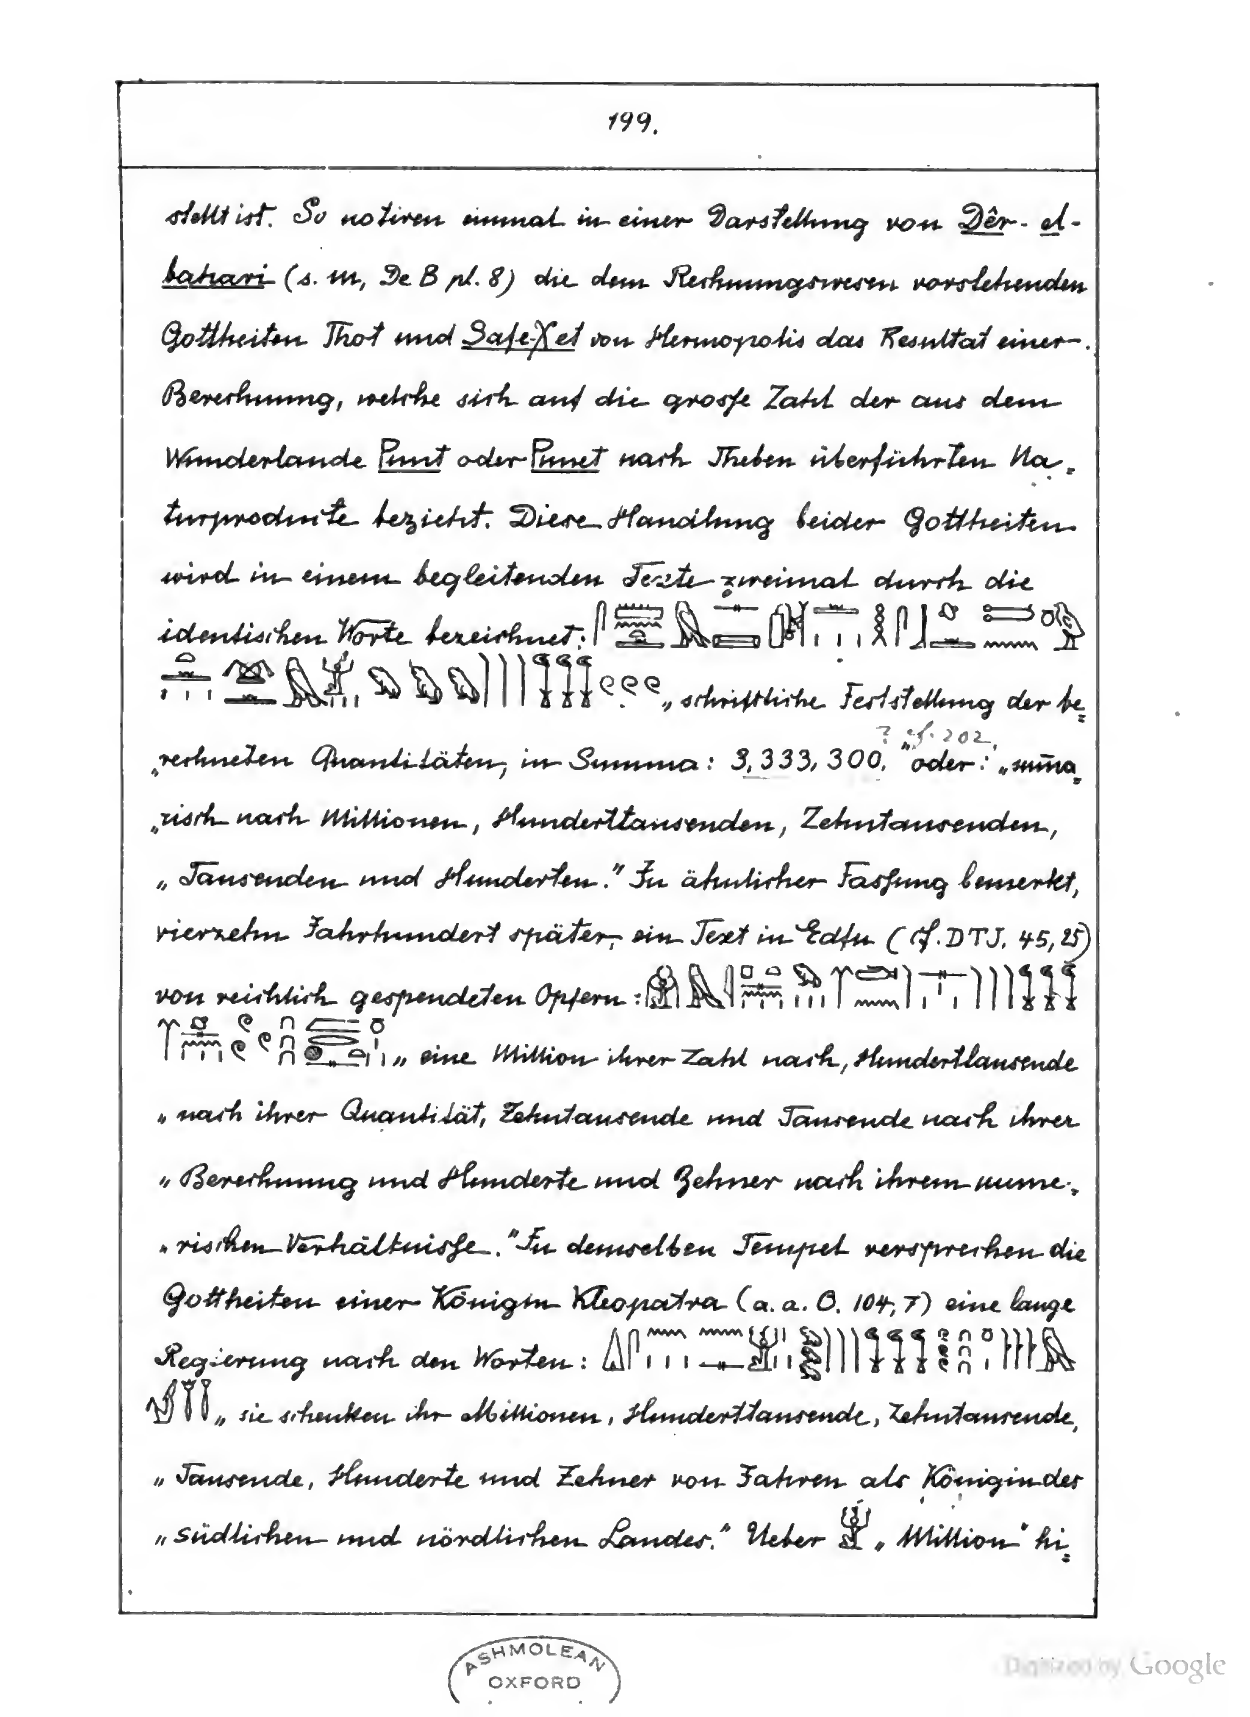 199.
stellt ist. So notiren einmal in einer Darstellung von Dêr-el-
bahari (s. m, De B pl. 8) die dem Rechnungswesen vorstehenden
Gottheiten Thot und Safe-χet von Hermopolis das Resultat einer
Berechnung, welche sich auf die grosse Zahl der aus dem
Wunderlande Punt oder Punet nach Theben überführten Na-
turprodukte bezieht. Diese Handlung beider Gottheiten
wird in einem begleitenden Texte zweimal durch die
identischen Worte bezeichnet:
„schriftliche Feststellung der be-
? cf. 202.
„rechneten Quantitäten, in Summa: 3,333,300," oder: „summa-
„risch nach Millionen, Hunderttausenden, Zehntausenden,
„Tausenden und Hunderten." In ähnlicher Fassung bemerkt,
vierzehn Jahrhundert später, ein Text in Edfu (cf. DTJ. 45, 25)
von reichlich gespendeten Opfern:
„eine Million ihrer Zahl nach, Hunderttausende
„nach ihrer Quantität, Zehntausende und Tausende nach ihrer
„Berechnung und Hunderte und Zehner nach ihrem nume-
„rischen Verhältnisse." In demselben Tempel versprechen die
Gottheiten einer Königin Kleopatra (a. a. O. 104, 7) eine lange
Regierung nach den Worten:
„sie schenken ihr Millionen, Hunderttausende, Zehntausende,
„Tausende, Hunderte und Zehner von Jahren als Königin des
„südlichen und nördlichen Landes." Ueber „Million" hi-
ASHMOLEAN
OXFORD
Digitized by Google